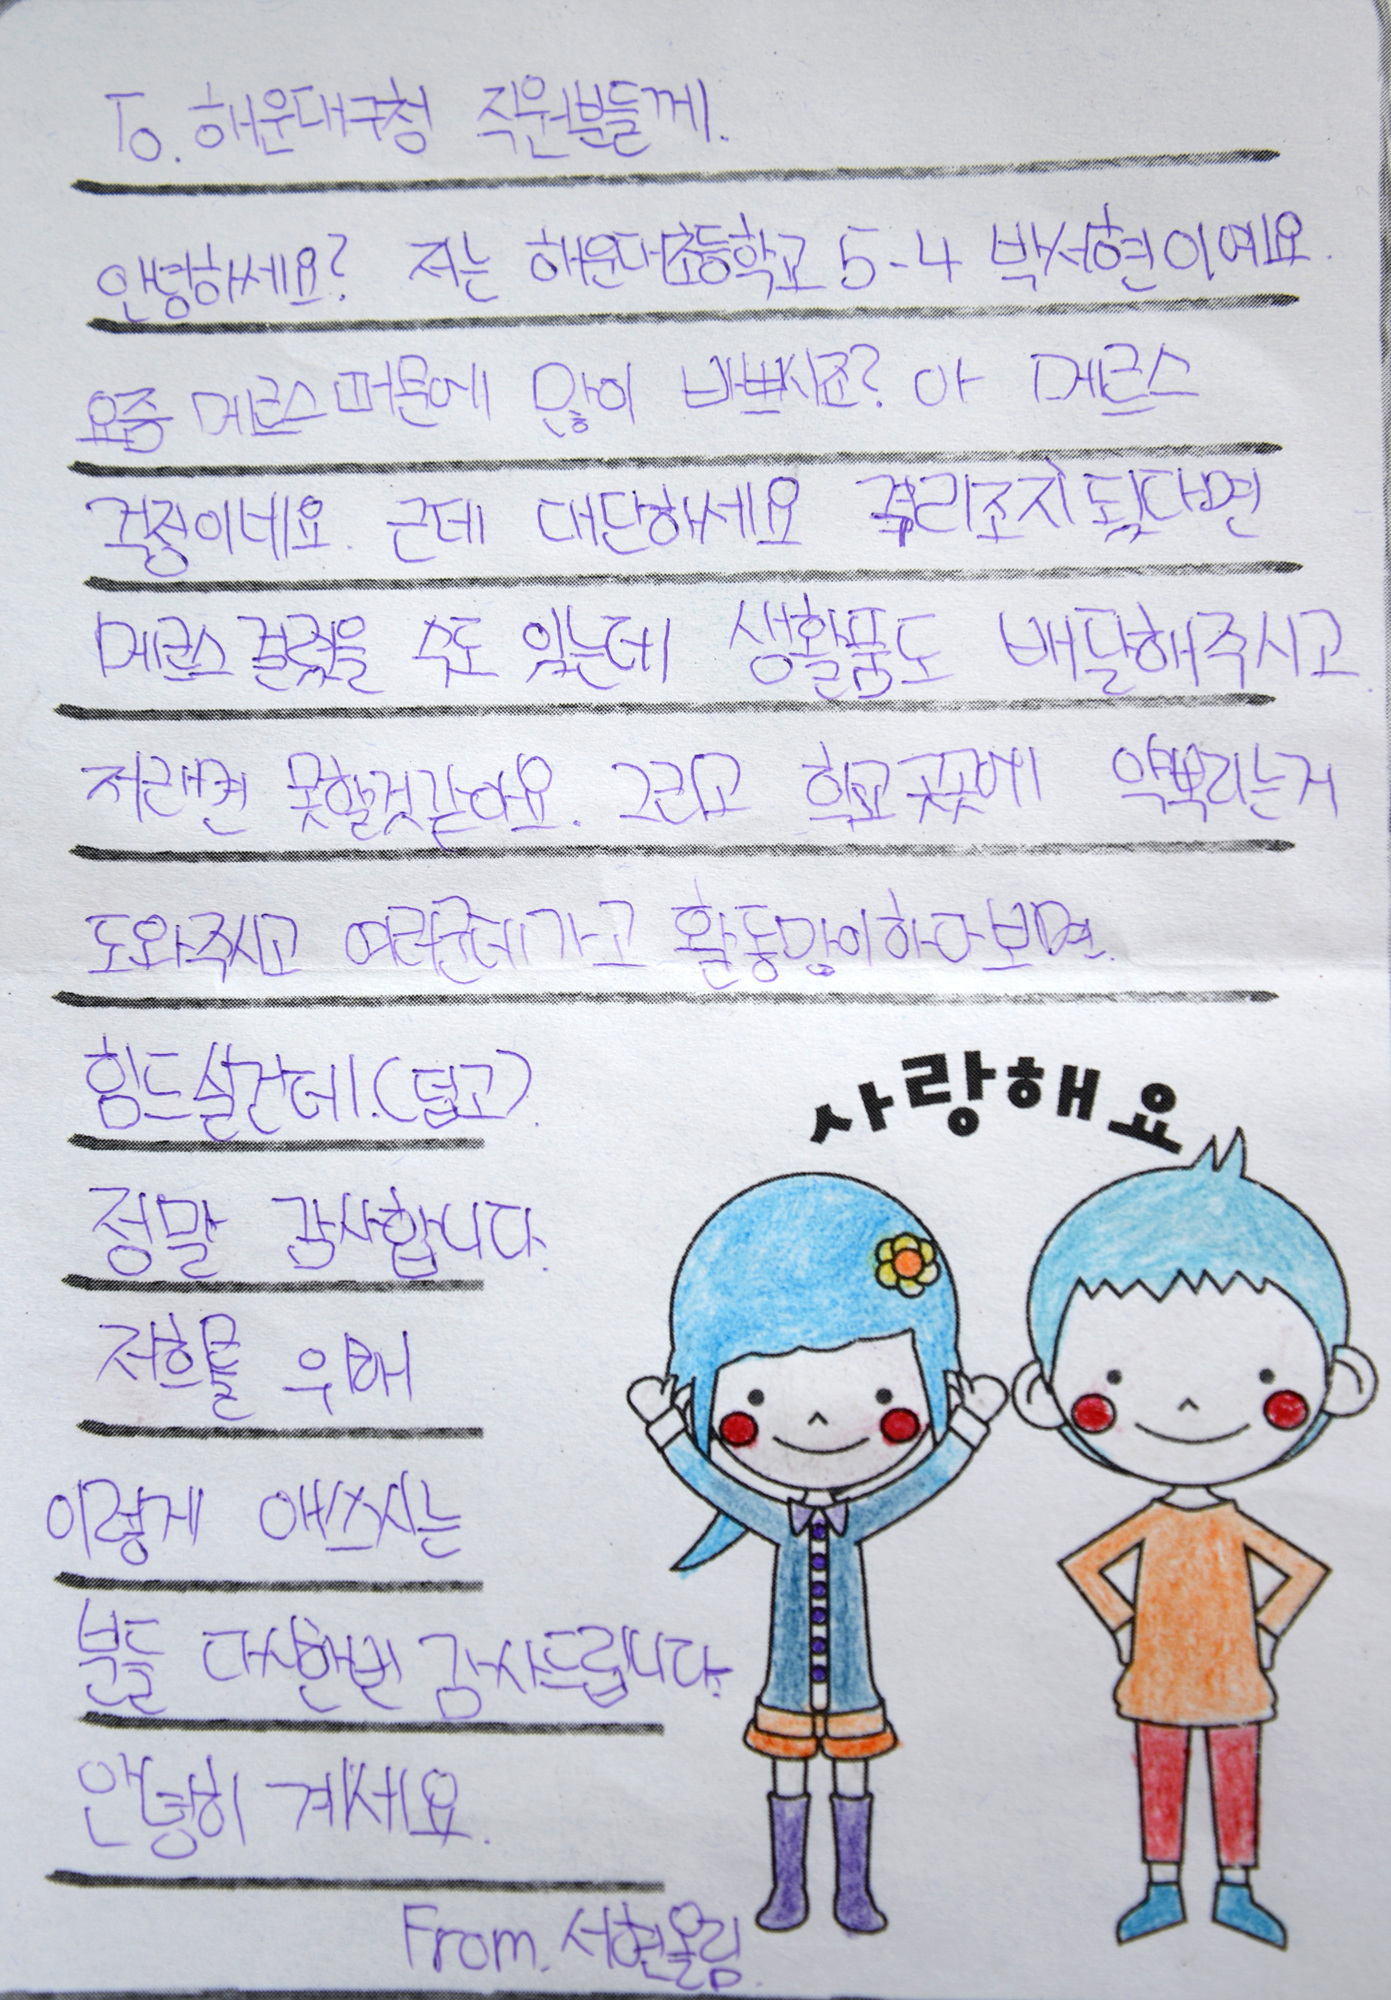 To. 해운대구청 직원분들께.
안녕하세요? 저는 해운대초등학교 5-4 박서현이예요.
요즘 메르스 때문에 많이 바쁘시죠? 아 메르스
걱정이네요. 근데 대단해세요 격리조치 됬다면
메르스 걸렸을 수도 있는데 생활품도 배달해주시고
저래면 못할것같아요. 그리고 학교 곳곳에 약뿌리는거
도와주시고 여러군데가고 활동많이하다보면.
힘드실건데.(덥고).
정말 감사합니다.
저희들 위해
이렇게 애쓰시는
분들 다시한번 감사드립니다.
안녕히 계세요.
From. 서현올림.
사랑해요